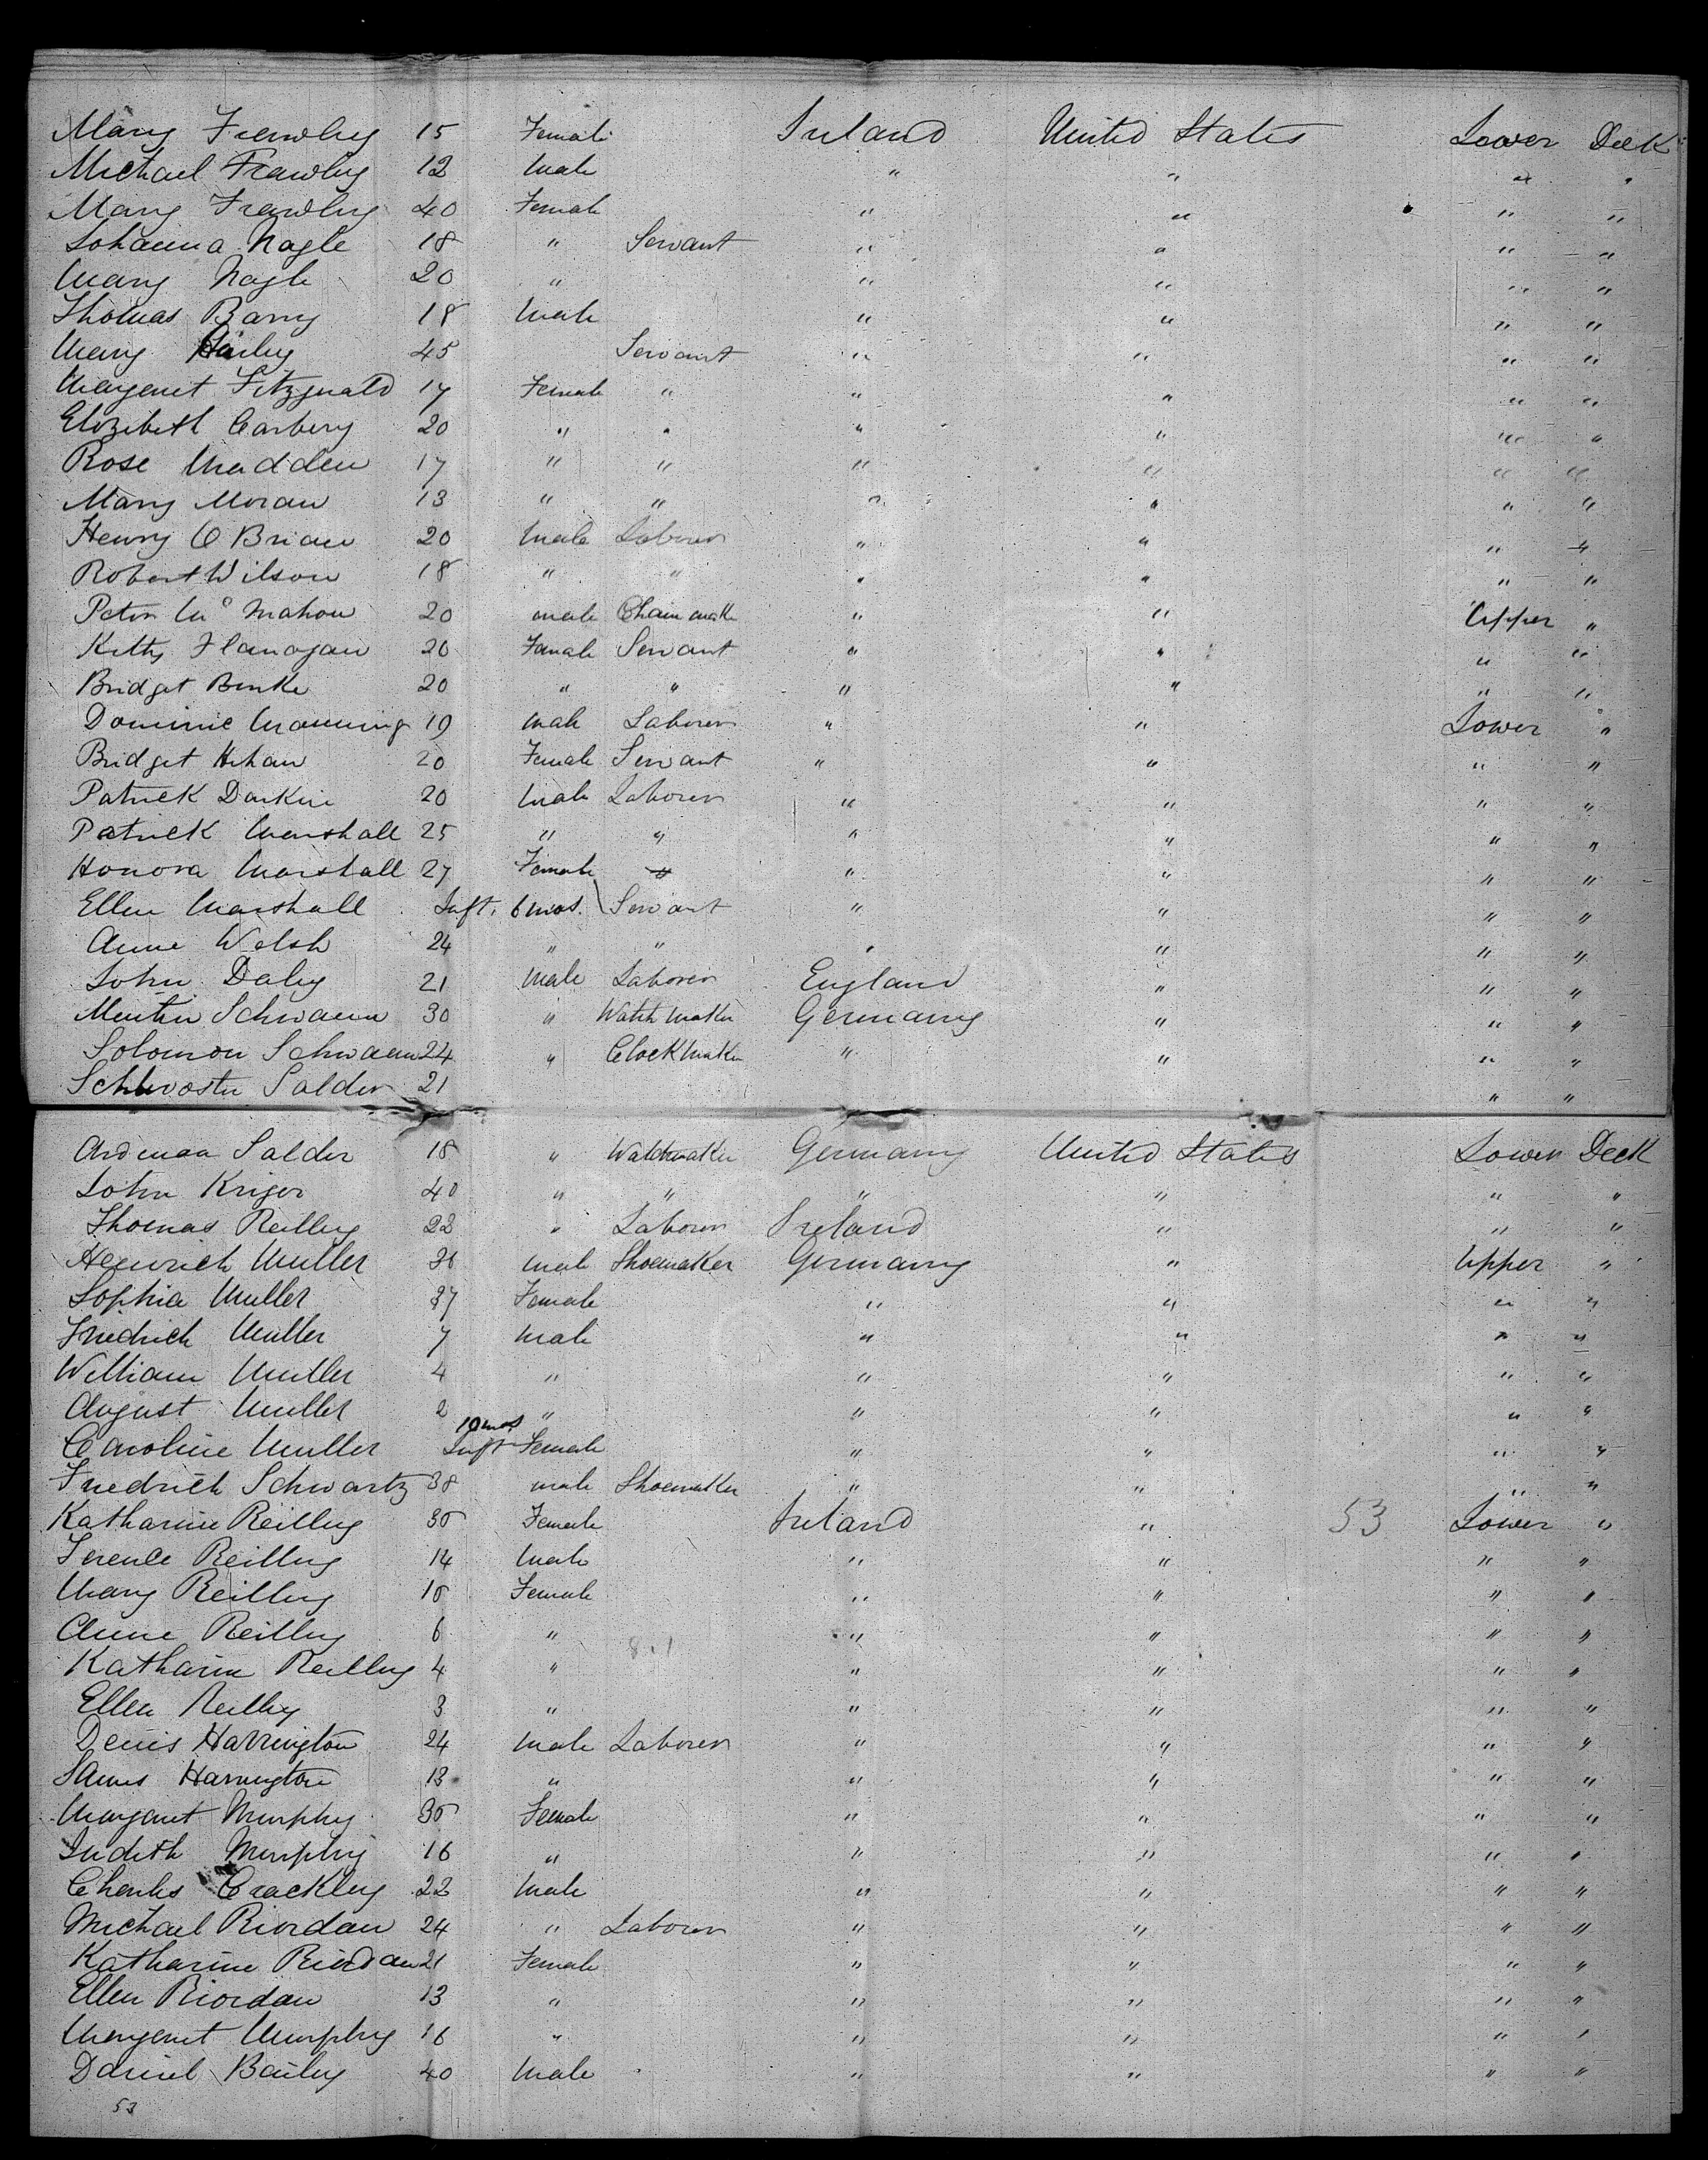 Mary Frawley 15 Female Ireland United States Lower Deck
Michael Frawley 12 Male " " " "
Mary Frawley 40 Female " " " "
Johanna Nagle 18 " Servant " " " "
Mary Nagle 20 " " " " "
Thomas Barry 18 Male " " " "
Mary Hurley 45 Servant " " " "
Margaret Fitzgerald 17 Female " " " " "
Elizabeth Carbery 20 " " " " " "
Rose Madden 17 " " " " " "
Mary Moran 13 " " " " " "
Henry O Brian 20 Male Laborer " " " "
Robert Wilson 18 " " " " " "
Peter Mc Mahon 20 male Chain maker " " Upper "
Kitty Flanagan 20 Female Servant " " " "
Bridget Burke 20 " " " " " "
Dominic Manning 19 Male Laborer " " Lower "
Bridget Hehan 20 Female Servant " " " "
Patrick Durkin 20 Male Laborer " " " "
Patrick Marshall 25 " " " " " "
Honora Marshall 27 Female " " " "
Ellen Marshall Inft. 6 mos. Servant " " " "
Anne Welsh 24 " " " " " "
John Daley 21 Male Laborer England " " "
Schwaun 30 " Watch Maker Germany " " "
Solomon Schwaun 24 " Clock Maker " " " "
Salder 21 " "
Salder 18 " Watchmaker Germany United States Lower Deck
John Kriger 40 " " " " " "
Thomas Reilley 22 " Laborer Ireland " " "
Heinrich Muller 36 male Shoemaker Germany " Upper "
Sophia Muller 37 Female " " " "
Friedrich Muller 7 Male " " " "
William Muller 4 " " " " "
August Muller 2 " " " " "
Caroline Muller 10 mos Inft Female " " " "
Friedrich Schwartz 38 male Shoemaker " " " "
Katharine Reilley 35 Female Ireland " 53 Lower "
Terence Reilley 14 Male " " " "
Mary Reilley 10 Female " " " "
Anne Reilley 6 " " " " "
Katharine Reilley 4 " " " " "
Ellen Reilley 3 " " " " "
Denis Harrington 24 Male Laborer " " " "
James Harrington 13 " " " " "
Margaret Murphy 35 Female " " " "
Judith Murphy 16 " " " " "
Charles Crackley 22 Male " " " "
Michael Riordan 24 " Laborer " " " "
Katharine Riordan 21 Female " " " "
Ellen Riordan 13 " " " " "
Margaret Murphy 16 " " " " "
Daniel Bailey 40 Male " " " "
53